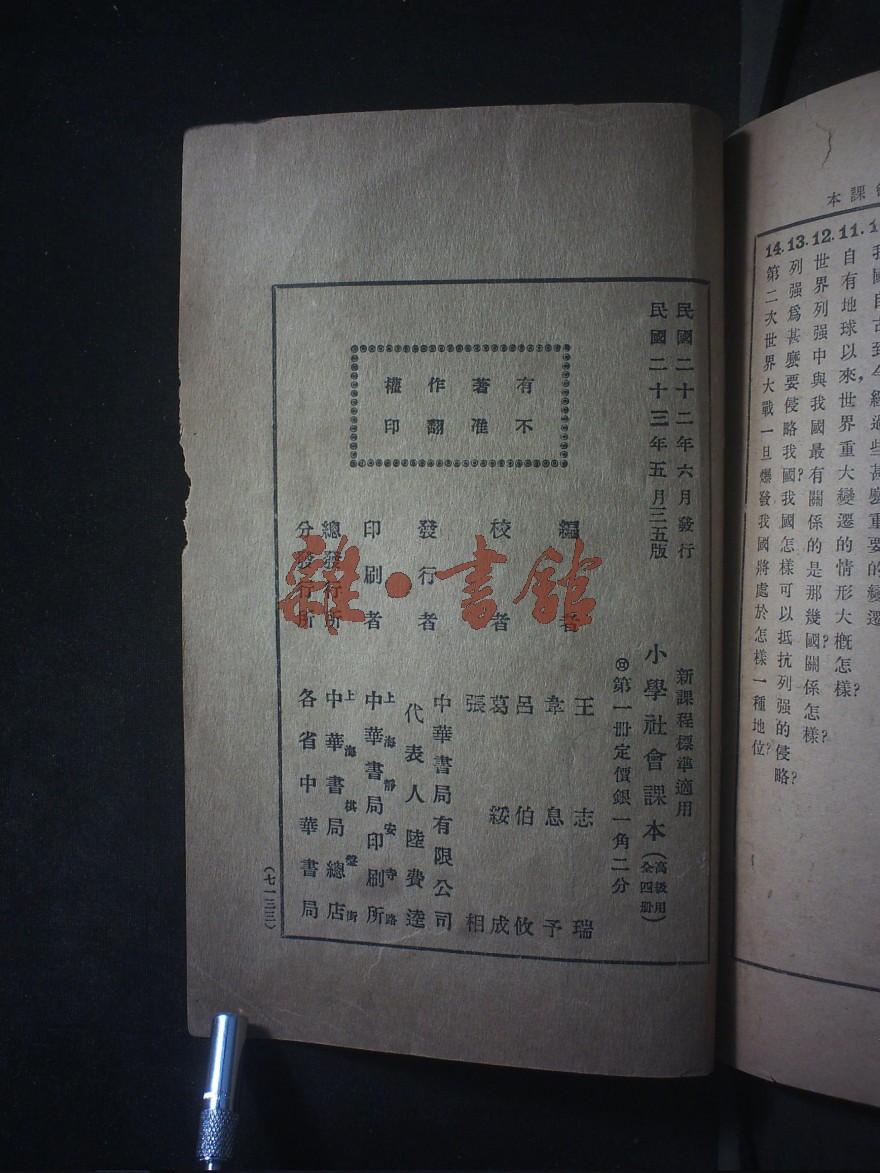 課本
11.自有地球以來，世界重大變遷的情形大概怎樣？
12.世界列强中與我國最有關係的是那幾國？關係怎樣？
13.列强爲甚麽要侵略我國？我國怎樣可以抵抗列强的侵略？
14.第二次世界大戰一旦爆發我國將處於怎樣一種地位？
民國二十二年六月發行
民國二十三年五月三五版
新課程標準適用
小學社會課本（高級用全四册）
第一册定價銀一角二分
有著作權
不准翻印
編者
王志瑞
韋息予
校者
呂伯攸
葛綏成
張相
發行者
中華書局有限公司
代表人陸費逵
印刷者
上海靜安寺路
中華書局印刷所
總發行所
上海棋盤街
中華書局總店
分發行所
各省中華書局
（七一三三）
雜·書館